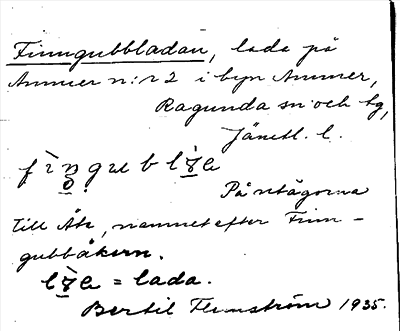 Finngubbladan, lada på
Ammer n:r 2 i byn Ammer,
Ragunda sn och tg,
Jämtl. l.
På utägorna
till Åke, namnet efter Finn-
gubbåkern.
= lada.
Bertil Flemström 1935.